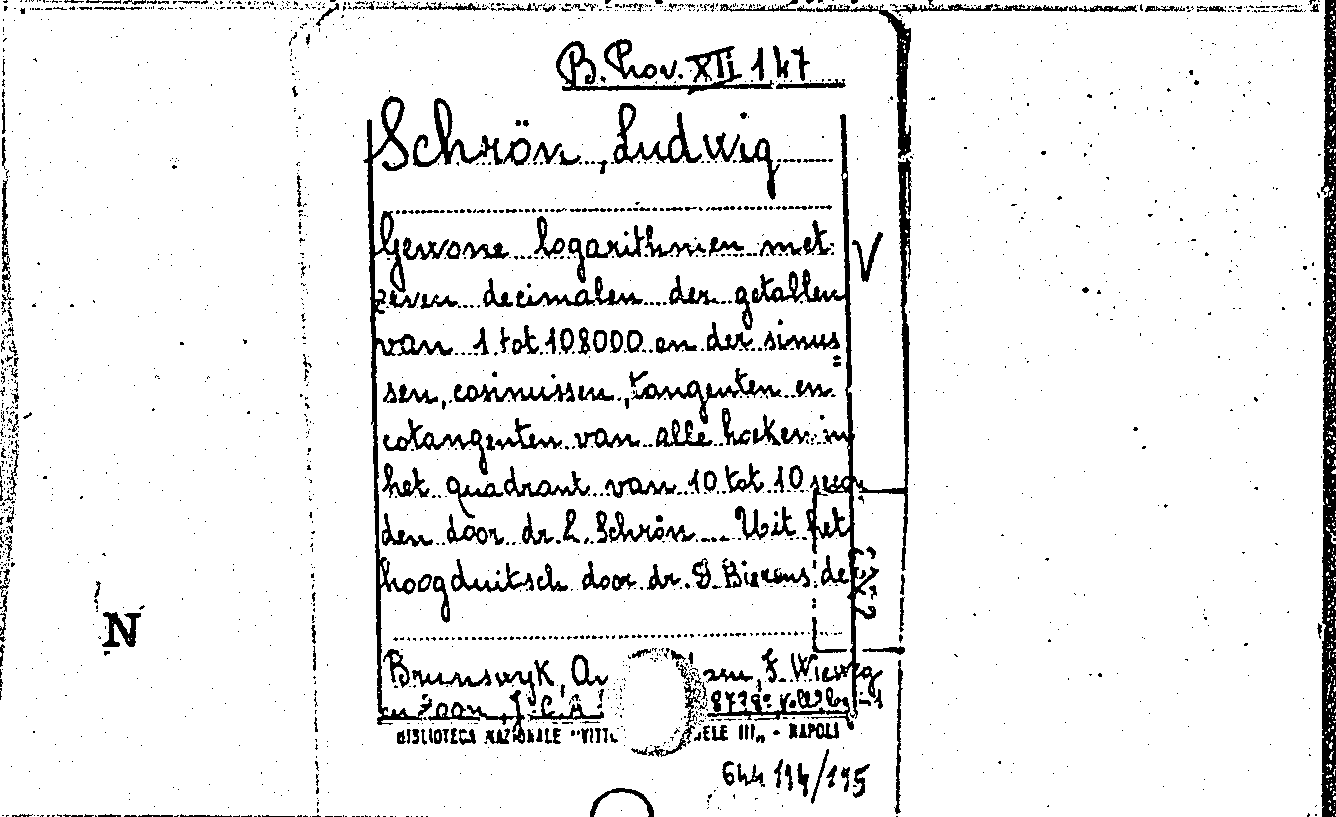 B. Prov. XII 147
Schrön, Ludwig
Gewone logarithmen met
V
zeven decimalen der getallen
van 1 tot 108000 en der sinus=
sen, cosinussen, tangenten en
cotangenten van alle hoeken in
het quadrant van 10 tot 10 secon
den door dr. L. Schrön ... Uit het
hoogduitsch door dr. D. Bierens de
N
Brunswyk, F. Wieweg
en Zoon, J. C. A
BIBLIOTECA NAZIONALE "VITT ELE III„ - NAPOLI
644 194/195